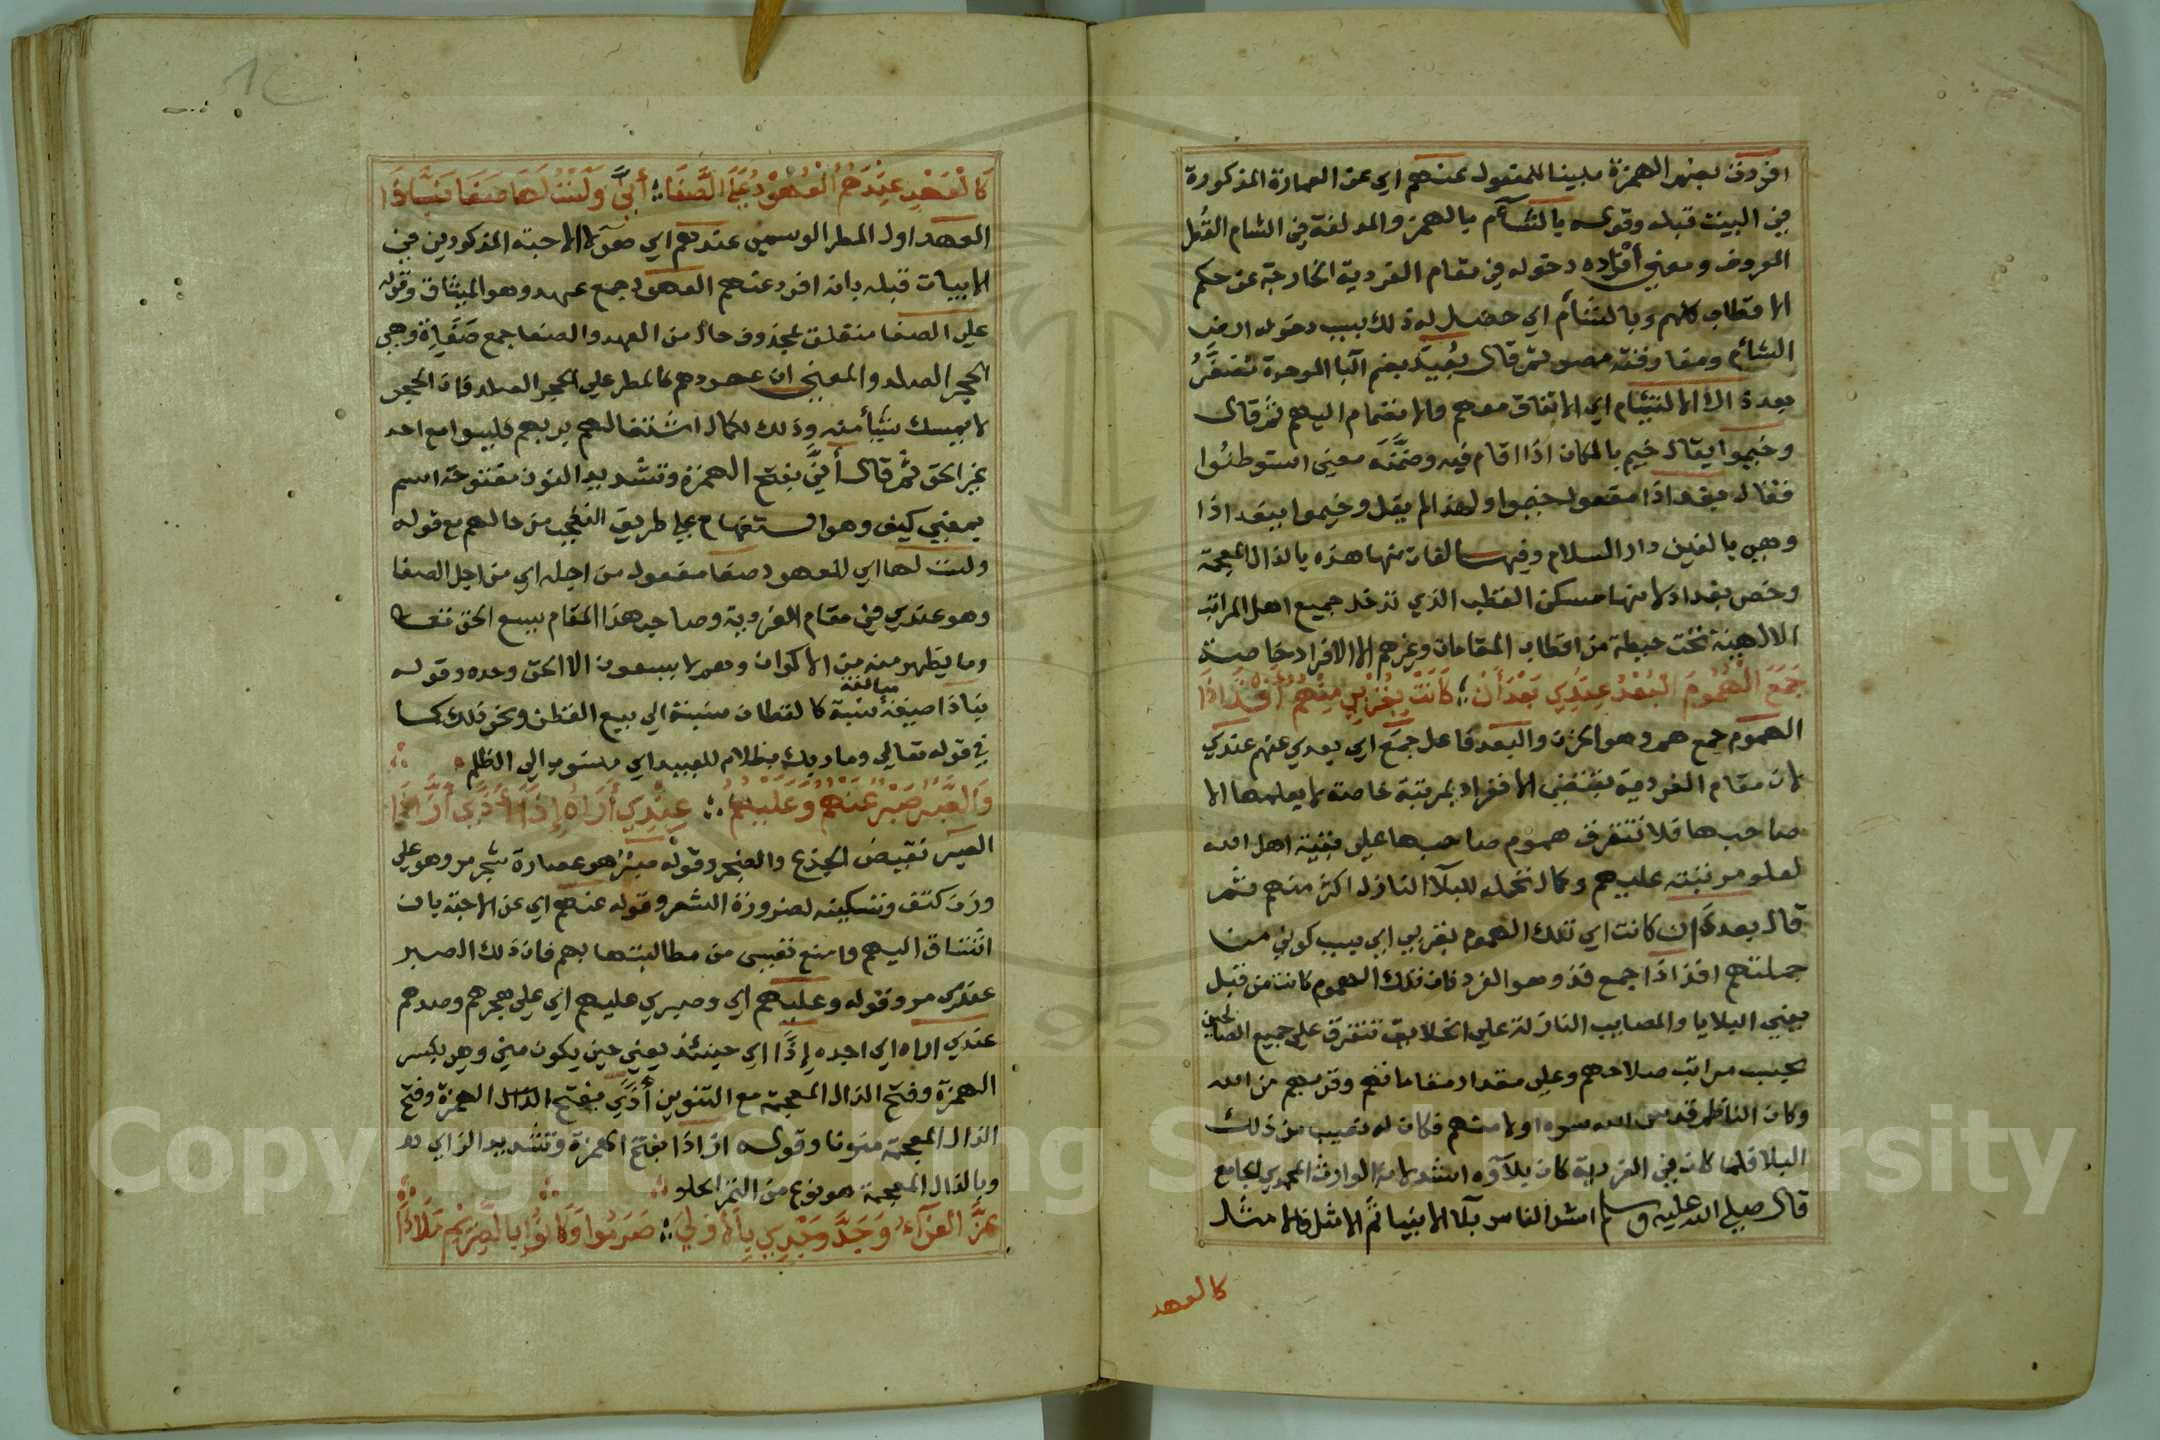 افردت بضم الهمزة مبينا للمفعول عنهم اي عن العبارة المذكورة
في البيت قبله وقوله يا لشآم بالهمز والمد لغة في الشام القطر
المعروف ومعنى افراده دخوله في مقام الفردية الخارجة عن حكم
الاقطاب كلهم وبالشام اي حصل له ذلك بسبب دخوله ارض
الشام ومفارقة مصر ثم قال بُعَيْد بضم البا الموحدة تصغير
بعد ذاك الالتئام اي الاتفاق معهم والانضمام اليهم ثم قال
وخيموا يقال خيم بالمكان اذا اقام فيه وضمّنه معنى استوطنوا
فقال بغداذا مفعول خيموا ولهذا لم يقل وخيموا ببغداذا
وهي بالغين دار السلام وفيها لغات منها هذه بالذال المعجمة
وخص بغداد لانها مسكن القطب الذي تدخل جميع اهل المراتب
الالهية تحت حيطته من اقطاب المقامات وغيرهم الا الافراد خاصة
جَمَعَ الْهُمُومَ الْبُعْدُ عِنْدِي بَعْدَ أَنْ ؛ كَانَتْ بِقُرْبِي مِنْهُمُ أَفْذَاذَا
الهموم جمع هم وهو الحزن والبعد فاعل جمع اي بعدي عنهم عندي
لان مقام الفردية يقتضي الافراد بمرتبة خاصة لا يعلمها الا
صاحبها فلا تتفرق هموم صاحبها على بقية اهل الله
لعلو مرتبته عليهم وكمال تحمله للبلآ النازل اكثر منهم ثم
قال بعد ان كانت اي تلك الهموم بقربي اي بسبب كوني من
جملتهم افذاذا جمع فذ وهو الفرد فان تلك الهموم كانت من قبل
يعني البلايا والمصايب النازلة على الخلايق تتفرق على جميع الصالحين
بحسب مراتب صلاحهم وعلى مقدار مقاماتهم وقربهم من الله
وكان الناظم قدس الله سره اولا منهم فكان له نصيب من ذلك
البلا فلما كان في الفردية كان بلآؤه اشد لانه الوارث المحمدي الجامع
قال صلى الله عليه وسلم اشد الناس بلآ الانبيا ثم الامثل فالامثل
كالعهد
كَالْعَهْدِ عِنْدَهُمُ الْعُهُودُ عَلَى الصَّفَا ؛ أَنَّى وَلَسْتُ لَهَا صَفًا نَبَّاذَا
العهد اول المطر الوسمي عندهم اي هؤلاء الاحبة المذكورين في
الابيات قبله بانه افرد عنهم العهود جمع عهد وهو الميثاق وقوله
على الصفا متعلق بمحذوف حال من العهد والصفا جمع صفاة وهي
الحجر الصلد والمعنى ان عهودهم كالمطر على الحجر الصلد فان الحجر
لا يمسك شيأ منه وذلك لكمال اشتغالهم بربهم فليسوا مع احد
غير الحق ثم قال أنّى بفتح الهمزة وتشديد النون مفتوحة اسم
بمعنى كيف وهو استفهام على طريق التعجب من حالهم مع قوله
ولست لها اي للعهود صفا مفعول من اجله اي من اجل الصفا
وهو عندي في مقام الفردية وصاحب هذا المقام يسع الحق تعالى
وما يظهر منه من الاكوان وهم لا يسعون الا الحق وحده وقوله
نباذا صيغة نسبة مبالغة كالقطان نسبة الى بيع القطن ونحو ذلك كما
في قوله تعالى وما ربك بظلام للعبيد اي منسوب الى الظلم
وَالصَّبْرُ صَبْرٌ عَنْهُمُ وَعَلَيْهِمُ ؛ عِنْدِي أَرَاهُ إِذًا أَذًى أَزَّاذَا
الصبر نقيض الجزع والضجر وقوله صبر هو عصارة شجر مر وهو على
وزن كتف وتسكينه لضرورة الشعر وقوله عنهم اي عن الاحبة بان
اشتاق اليهم وامنع نفسي من مطالبتها بهم فان ذلك الصبر
عندي مر وقوله وعليهم اي وصبري عليهم اي على هجرهم وصدهم
عندي اراه اي اجده إذًا اي حينئذ يعني حين يكون مني وهي بكسر
الهمزة وفتح الذال المعجمة مع التنوين أذًى بفتح الهمزة وفتح
الذال المعجمة منونا وقوله ازاذا بفتح الهمزة وتشديد الزاي
وبالذال المعجمة هو نوع من التمر الحلو
عَزَّ الْعَزَآءُ وَجَدَّ وَجْدِي بِالْأُولَى ؛ صَرَمُوا وَكَانُوا بِالصَّرِيمِ مَلَاذَا